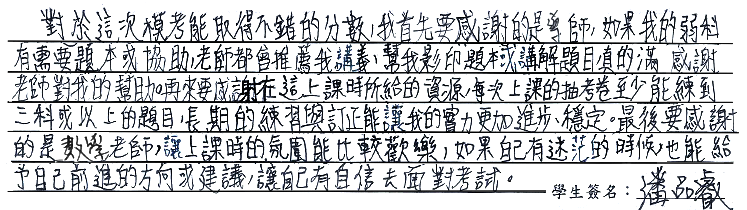 對於這次模考能取得不錯的分數,我首先要感謝的是導師,如果我的弱科
有需要題本或協助,老師都會推薦我講義,幫我影印題本或講解題目真的滿 感謝
老師對我的幫助。再來要感謝在這上課時所給的資源,每次上課的抽考卷至少能練到
三科或以上的題目,長期的練習與訂正能讓我的實力更加進步、穩定。最後要感謝
的是數學老師,讓上課時的氛圍能比較歡樂,如果自己有迷茫的時候,也能給
予自己前進的方向或建議,讓自己有自信去面對考試。
學生簽名:潘品睿